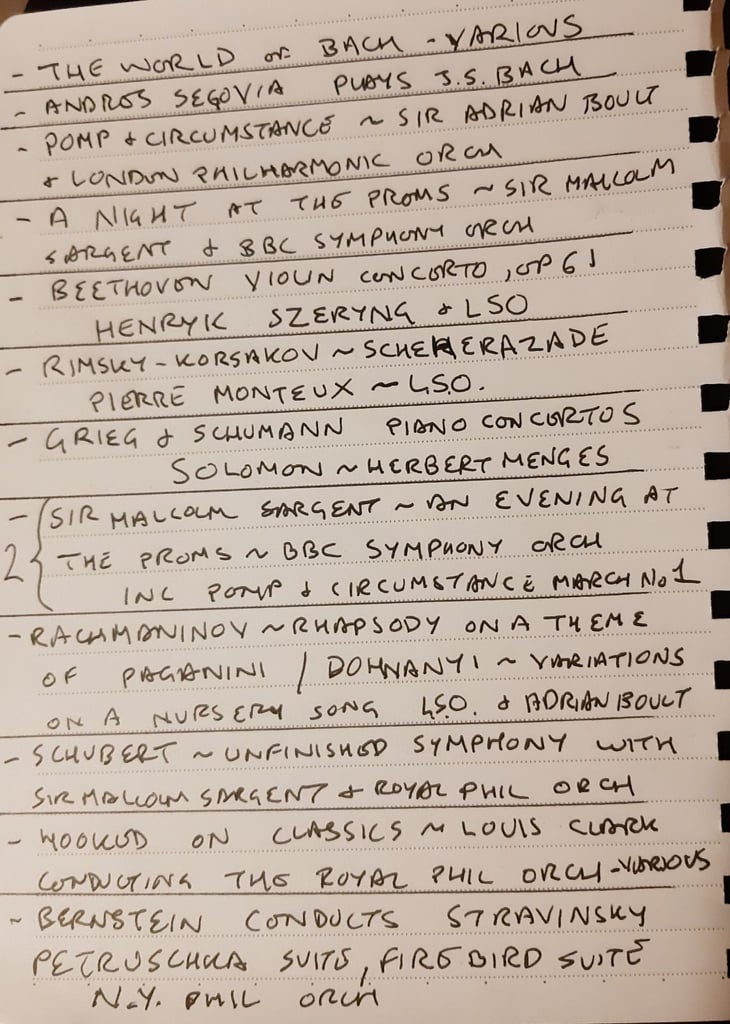 - THE WORLD OF BACH - VARIOUS
- ANDROS SEGOVIA PLAYS J.S. BACH
- POMP & CIRCUMSTANCE ~ SIR ADRIAN BOULT
& LONDON PHILHARMONIC ORCH
- A NIGHT AT THE PROMS ~ SIR MALCOLM
SARGENT & BBC SYMPHONY ORCH
- BEETHOVON VIOLIN CONCORTO, OP 61
HENRYK SZERYNG & LSO
- RIMSKY-KORSAKOV ~ SCHEHERAZADE
PIERRE MONTEUX ~ L.S.O.
- GRIEG & SCHUMANN PIANO CONCERTOS
SOLOMON ~ HERBERT MENGES
- SIR MALCOLM SARGENT ~ AN EVENING AT
2 { THE PROMS ~ BBC SYMPHONY ORCH
INC POMP & CIRCUMSTANCE MARCH No 1
- RACHMANINOV ~ RHAPSODY ON A THEME
OF PAGANINI / DOHNANYI ~ VARIATIONS
ON A NURSERY SONG L.S.O. & ADRIAN BOULT
- SCHUBERT ~ UNFINISHED SYMPHONY WITH
SIR MALCOLM SARGENT & ROYAL PHIL ORCH
- HOOKED ON CLASSICS ~ LOUIS CLARK
CONDUCTING THE ROYAL PHIL ORCH - VARIOUS
~ BERNSTEIN CONDUCTS STRAVINSKY
PETRUSCHKA SUITE, FIREBIRD SUITE
N.Y. PHIL ORCH